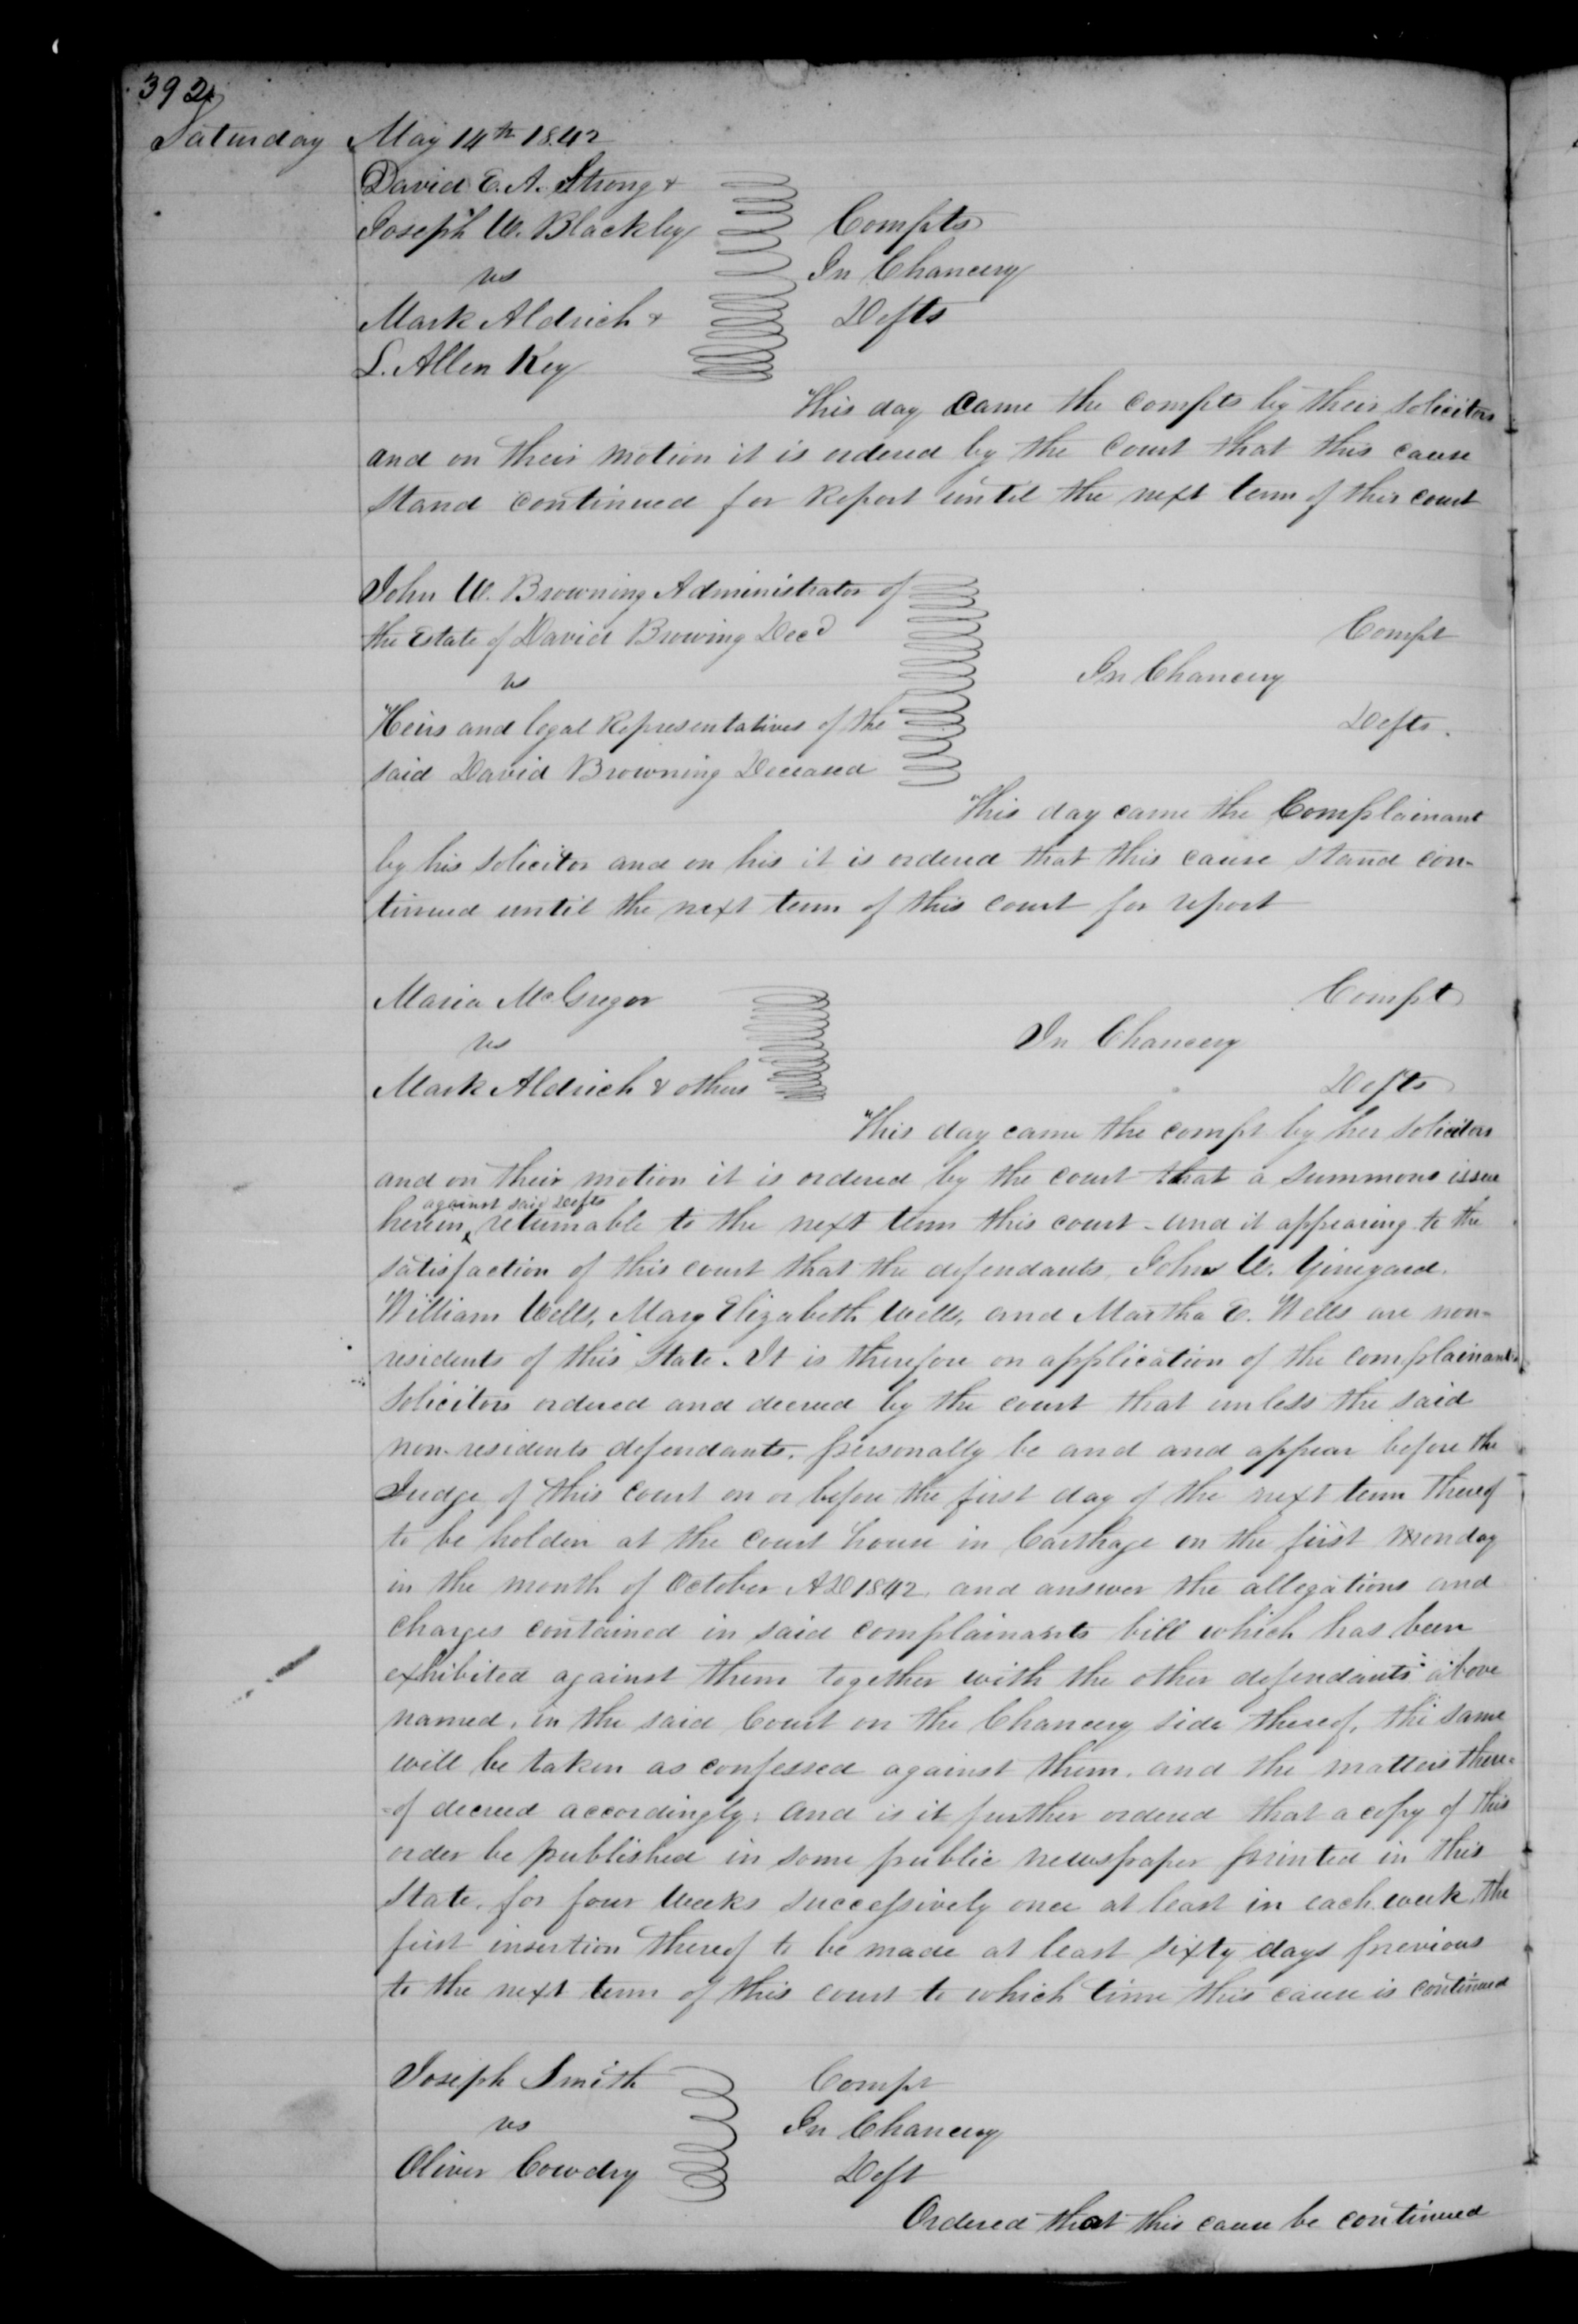 392
Saturday May 14th 1842
David E. A. Strong &
Joseph W. Blackley Compts
vs In Chancery
Mark Aldrich & Defts
L. Allen Key
This day came the compts by their solicitors
and on their motion it is ordered by the court that this cause
stand continued for Report until the next term of this court
John W. Browning Administrator of
the Estate of David Browing Decd Compt
vs In Chancery
Heirs and legal Representatives of the Defts.
said David Browning Deceased
This day came the Complainant
by his solicitor and on his it is ordered that this cause stand con-
tinued until the next term of this court for report
Maria McGregor Compt
vs In Chancery
Mark Aldrich & others Defts
This day came the compt by her solicitors
and on their motion it is ordered by the court that a summons issue
against said Defts
herein, returnable to the next term this court - and it appearing to the
satisfaction of this court that the defendants John W. Vineyard.
William Wells, Mary Elizabeth Wells, and Martha E. Wells are non-
residents of this State. It is therefore on application of the complainants
solicitors ordered and decreed by the court that unless the said
non-residents defendants, personally be and and appear before the
Judge of this court on or before the first day of the next term thereof
to be holden at the court house in Carthage on the first monday
in the month of October AD 1842 and answer the allegations and
charges contained in said complainants bill which has been
exhibited against them together with the other defendants above
named, in the said Court on the Chancery side thereof, the same
will be taken as confessed against them. and the matters there-
-of decreed accordingly: and is it further ordered that a copy of this
order be published in some public newspaper printed in this
state, for four weeks successively once at least in each week, the
first insertion thereof to be made at least sixty days previous
to the next term of this court to which time this cause is continued
Joseph Smith Compt
vs In Chancery
Oliver Cowdry Deft
Ordered that this cause be continued